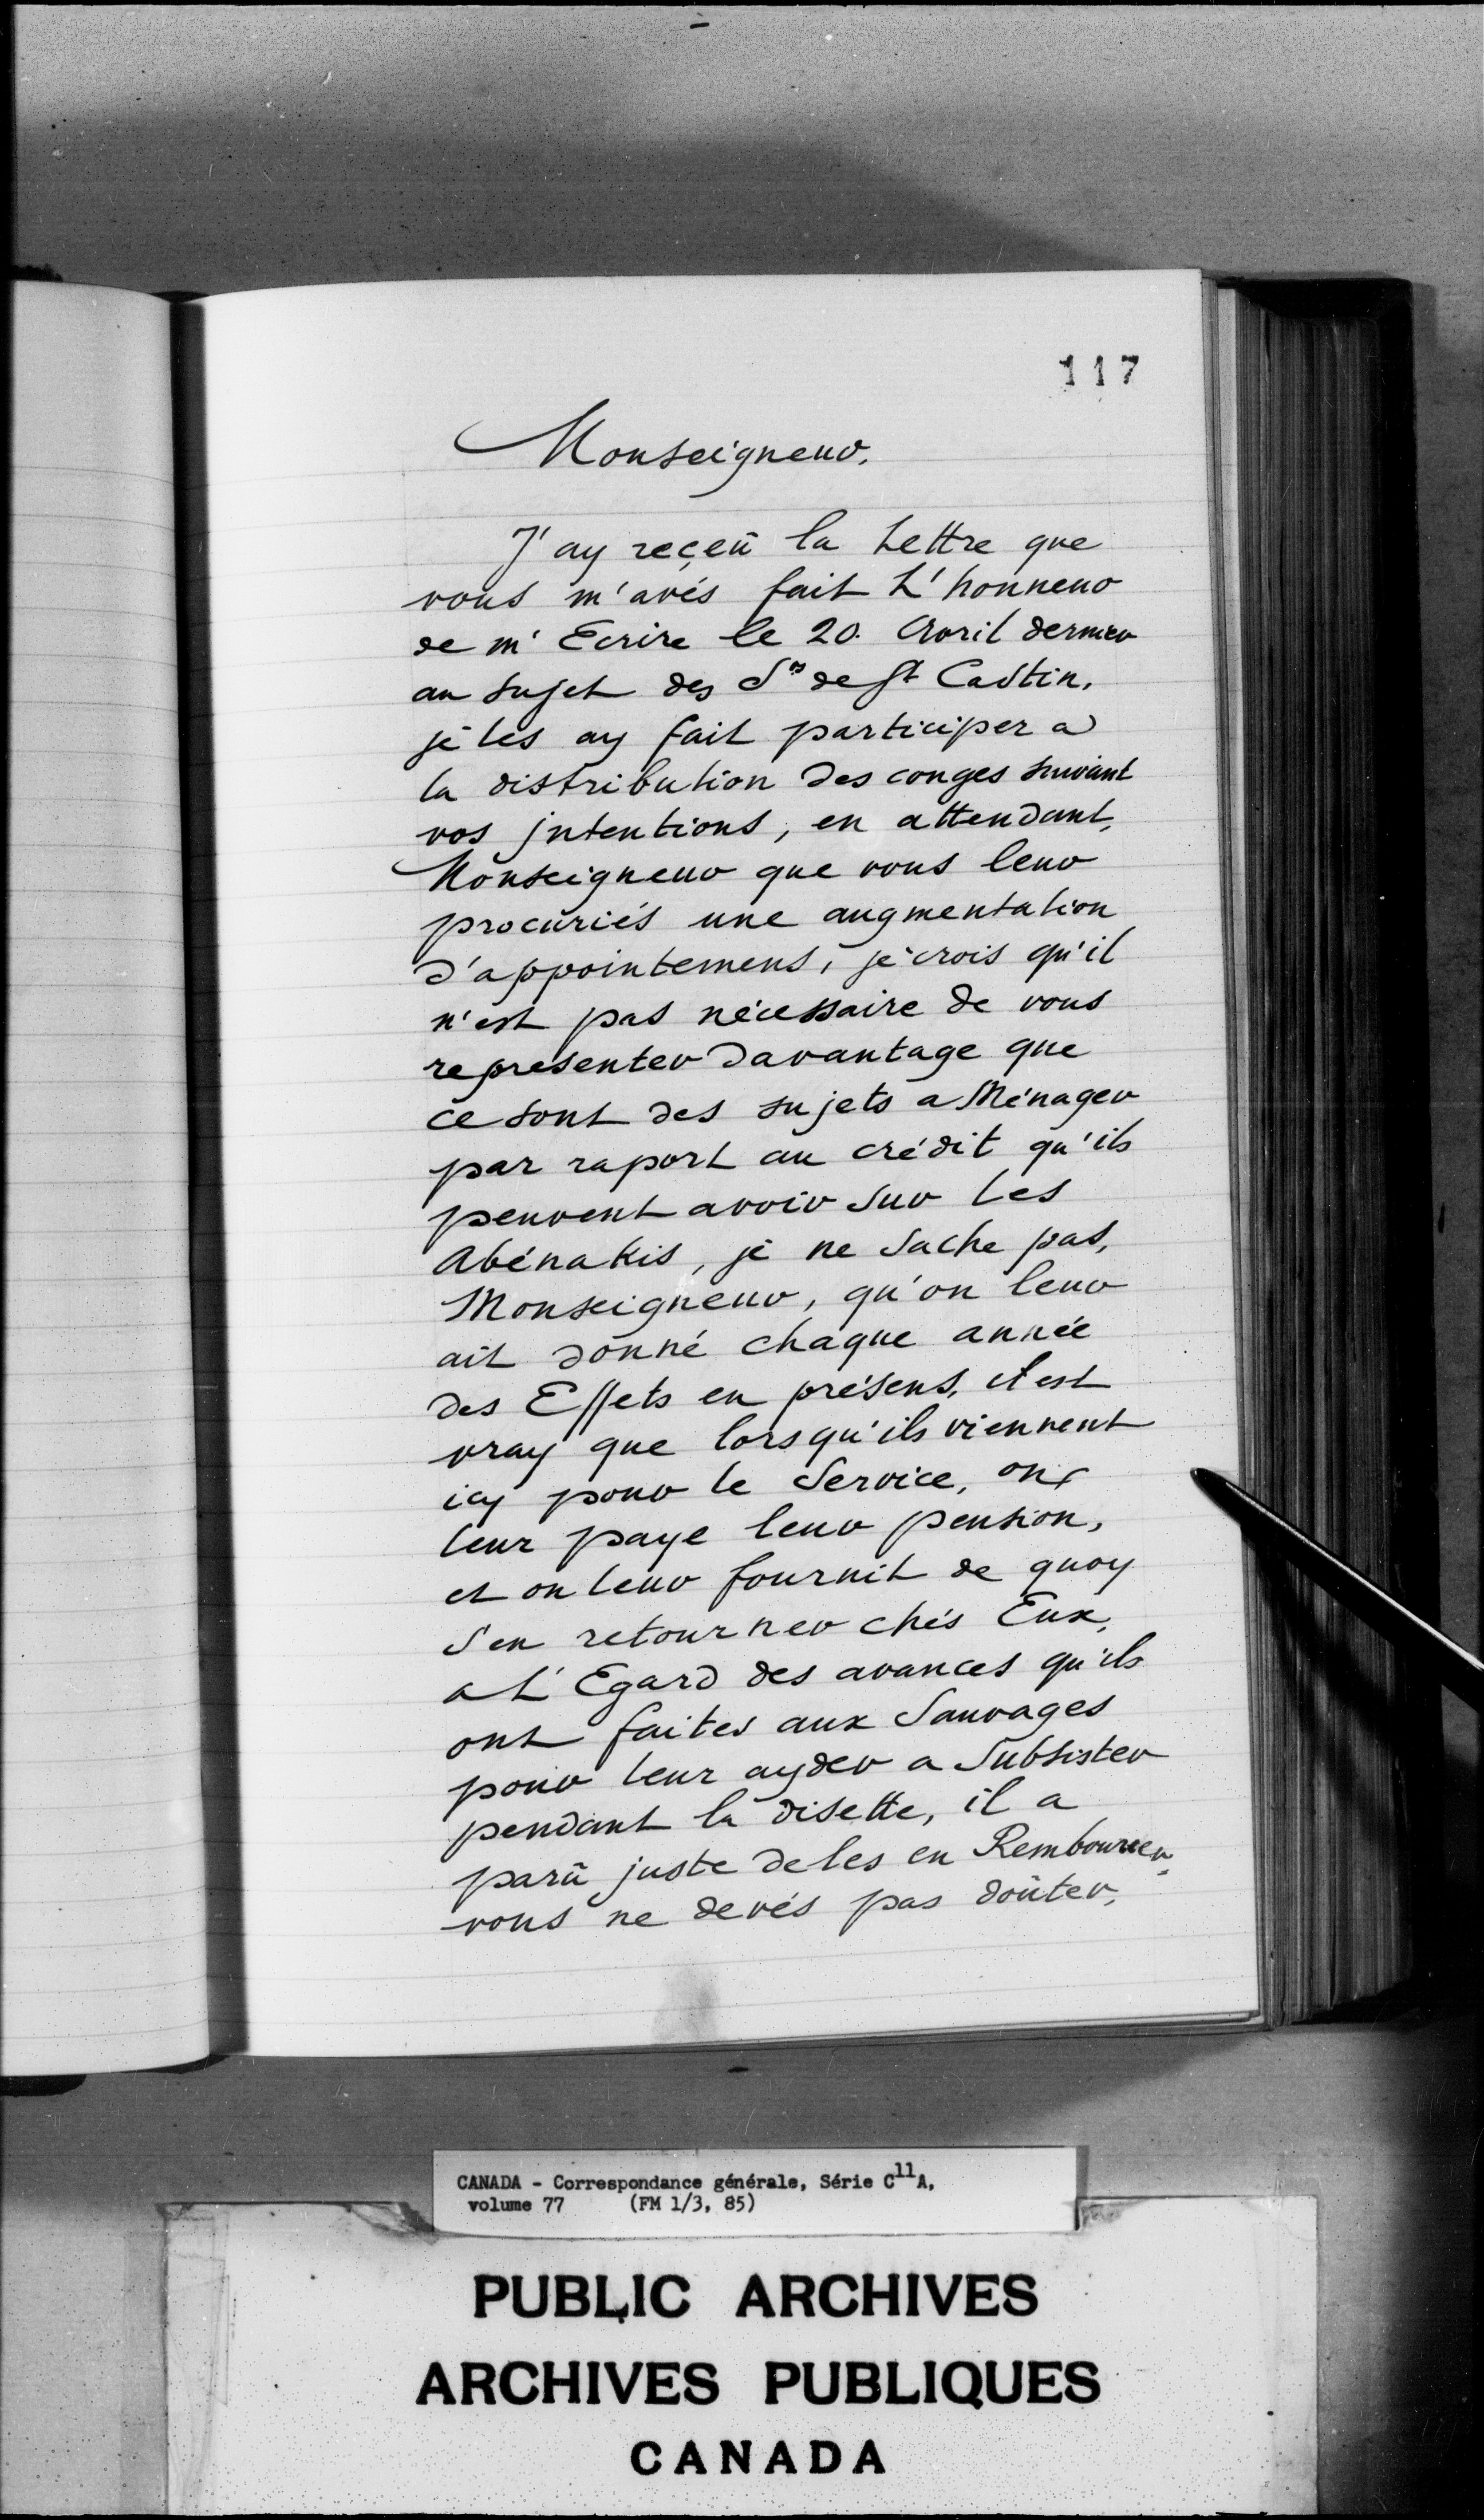 117
Monseigneur.
J'ay reçeü la Lettre que
vous m'avés fait L'honneur
de m'Ecrire le 20. Avril dernier
au sujet des Srs de St Castin.
je les ay fait participer a
la distribution des conges suivant
vos jntentions, en attendant,
Monseigneur que vous leur
procuriés une augmentation
d'appointemens, je crois qu'il
n'est pas nécessaire de vous
representer davantage que
ce sont des sujets a Ménager
par raport au crédit qu'ils
peuvent avoir sur les
Abénakis, je ne sache pas,
Monseigneur, qu'on leur
ait donné chaque année
des Effets en présens, il est
vray que lorsqu'ils viennent
icy pour le Service, on
leur paye leur pension,
et on leur fournit de quoy
s'en retourner chés Eux,
a L'Egard des avances qu'ils
ont faites aux Sauvages
pour leur ayder a Subsister
pendant la disette, il a
parû juste de les en Rembourser,
vous ne devés pas doûter,
CANADA - Correspondance générale, Série C11A,
volume 77 (FM 1/3, 85)
PUBLIC ARCHIVES
ARCHIVES PUBLIQUES
CANADA